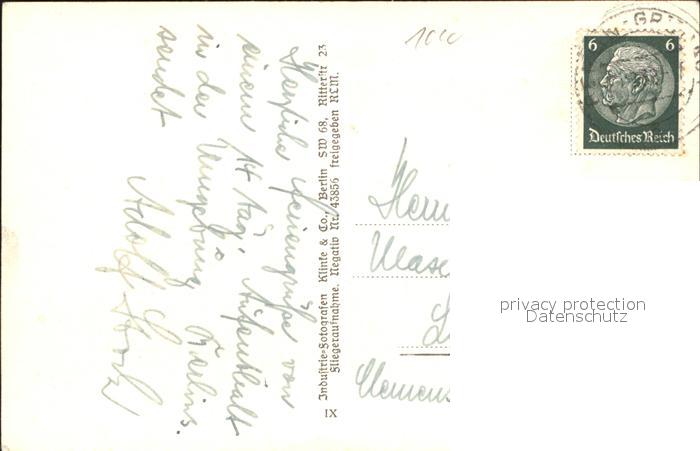 Herzliche Feriengrüße von
einem 14 täg. Aufenthalt
in der Umgebung Berlins.
sendet
Adolf
Industrie-Fotografen Klinke & Co., Berlin SW 68, Ritterstr 23
Fliegeraufnahme. Negativ Nr. 43856 freigegeben RLM.
IX
6 6
Deutsches Reich
Herrn
Clemens
privacy protection
Datenschutz